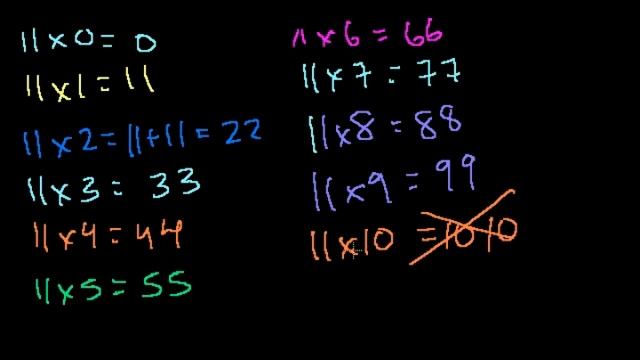 11 x 0 = 0
11 x 1 = 11
11 x 2 = 11 + 11 = 22
11 x 3 = 33
11 x 4 = 44
11 x 5 = 55
11 x 6 = 66
11 x 7 = 77
11 x 8 = 88
11 x 9 = 99
11 x 10 = 10 10